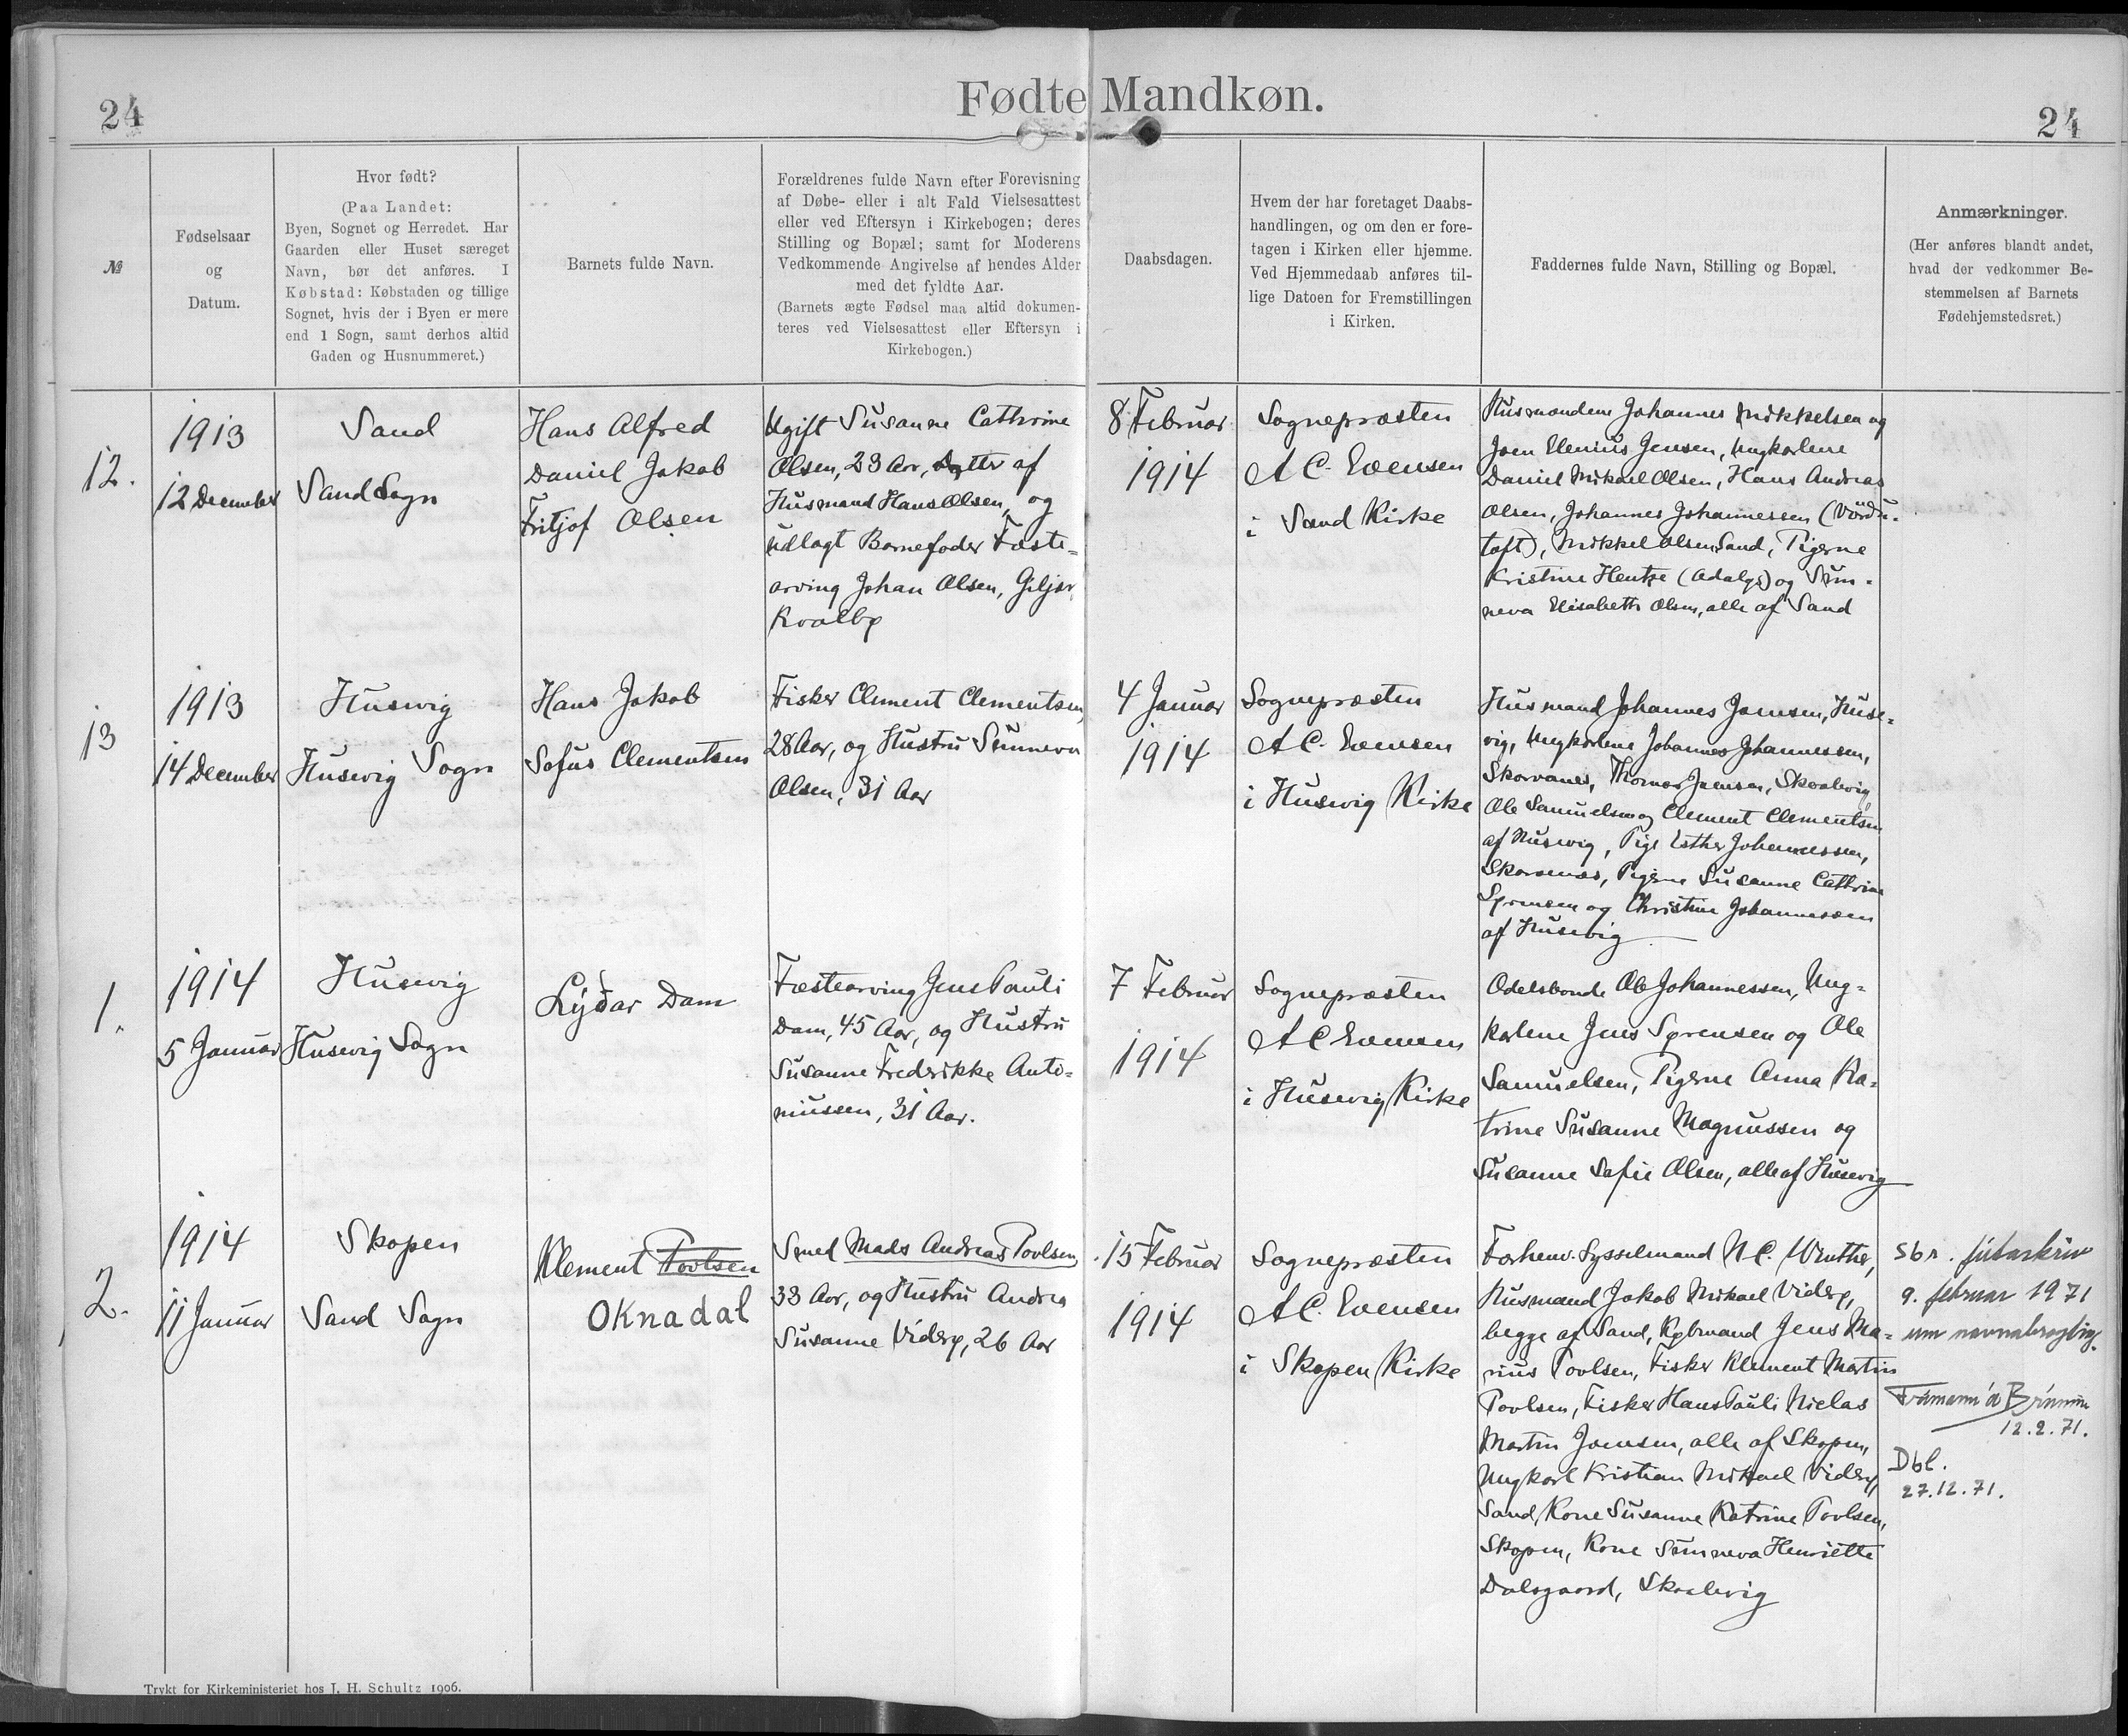 24
Fødte Mandkøn.
24
№
Fødselsaar
og
Datum.
Hvor født?
(Paa Landet:
Byen, Sognet og Herredet. Har
Gaarden eller Huset særeget
Navn, bør det anføres. I
Købstad: Købstaden og tillige
Sognet, hvis der i Byen er mere
end 1 Sogn, samt derhos altid
Gaden og Husnummeret.)
Barnets fulde Navn.
Forældrenes fulde Navn efter Forevisning
af Døbe- eller i alt Fald Vielsesattest
eller ved Eftersyn i Kirkebogen; deres
Stilling og Bopæl; samt for Moderens
Vedkommende Angivelse af hendes Alder
med det fyldte Aar.
(Barnets ægte Fødsel maa altid dokumen-
teres ved Vielsesattest eller Eftersyn i
Kirkebogen.)
Daabsdagen.
Hvem der har foretaget Daabs-
handlingen, og om den er fore-
tagen i Kirken eller hjemme.
Ved Hjemmedaab anføres til-
lige Datoen for Fremstillingen
i Kirken.
Faddernes fulde Navn, Stilling og Bopæl.
Anmærkninger.
(Her anføres blandt andet,
hvad der vedkommer Be-
stemmelsen af Barnets
Fødehjemstedsret.)
12.
1913
12 December
Sand
Sand Sogn
Hans Alfred
Daniel Jakob
Fritjof Olsen
Ugift Susanne Cathrine
Olsen, 23 Aar, Datter af
Husmand Hans Olsen, og
udlagt Barnefader Fæste-
arving Johan Olsen, Giljar,
Kvalbø
8 Februar
1914
Sognepræsten
A C. Evensen
i Sand Kirke
Husmændene Johannes Mikkelsen og
Joen Elenius Jensen, Ungkarlene
Daniel Mikael Olsen, Hans Andreas
Olsen, Johannes Johannessen (Vørdu-
toft), Mikkel Olsen, Sand, Pigerne
Kristine Hentze (Adalys) og Sun-
neva Elisabeth Olsen, alle af Sand
13
1913
14 December
Husevig
Husevig Sogn
Hans Jakob
Sofus Clementsen
Fisker Clement Clementsen,
28 Aar, og Hustru Sunneva
Olsen, 31 Aar
4 Januar
1914
Sognepræsten
A C. Evensen
i Husevig Kirke
Husmand Johannes Joensen, Huse-
vig, Ungkarlene Johannes Johannessen,
Skarvanes, Thomas Joensen, Skaalevig,
Ole Samuelsen og Clement Clementsen
af Husevig, Pige Esther Johannessen,
Skarvanes, Pigerne Susanne Cathrine
Sørensen og Christine Johannessen
af Husevig
1.
1914
5 Januar
Husevig
Husevig Sogn
Lýðar Dam
Fæstearving Jens Pauli
Dam, 45 Aar, og Hustru
Susanne Frederikke Anto-
niussen, 31 Aar.
7 Februar
1914
Sognepræsten
A C Evensen
i Husevig Kirke
Odelsbonde Ole Johannessen, Ung-
karlene Jens Sørensen og Ole
Samuelsen, Pigerne Anna Ka-
trine Susanne Magnussen og
Susanne Sofie Olsen, alle af Husevig
2.
1914
11 Januar
Skopen
Sand Sogn
Klement Poulsen
Oknadal
Smed Mads Andreas Poulsen
33 Aar, og Hustru Andrea
Susanne Viderø, 26 Aar
15 Februar
1914
Sognepræsten
A C. Evensen
i Skopen Kirke
Forhenv. Sysselmand N. C. Winther,
Husmand Jakob Mikael Viderø,
begge af Sand, Købmand Jens Ma-
rius Poulsen, Fisker Klement Martin
Poulsen, Fisker Hans Pauli Nielas
Martin Joensen, alle af Skopen,
Ungkarl Kristian Mikael Viderø,
Sand, Kone Susanne Katrine Poulsen,
Skopen, Kone Sunneva Henriette
Dalsgaard, Skaalevig
Sbr.
9. februar 1971
um navnabroyting.
12.2.71.
Dbl.
27.12.71.
Trykt for Kirkeministeriet hos J. H. Schultz 1906.